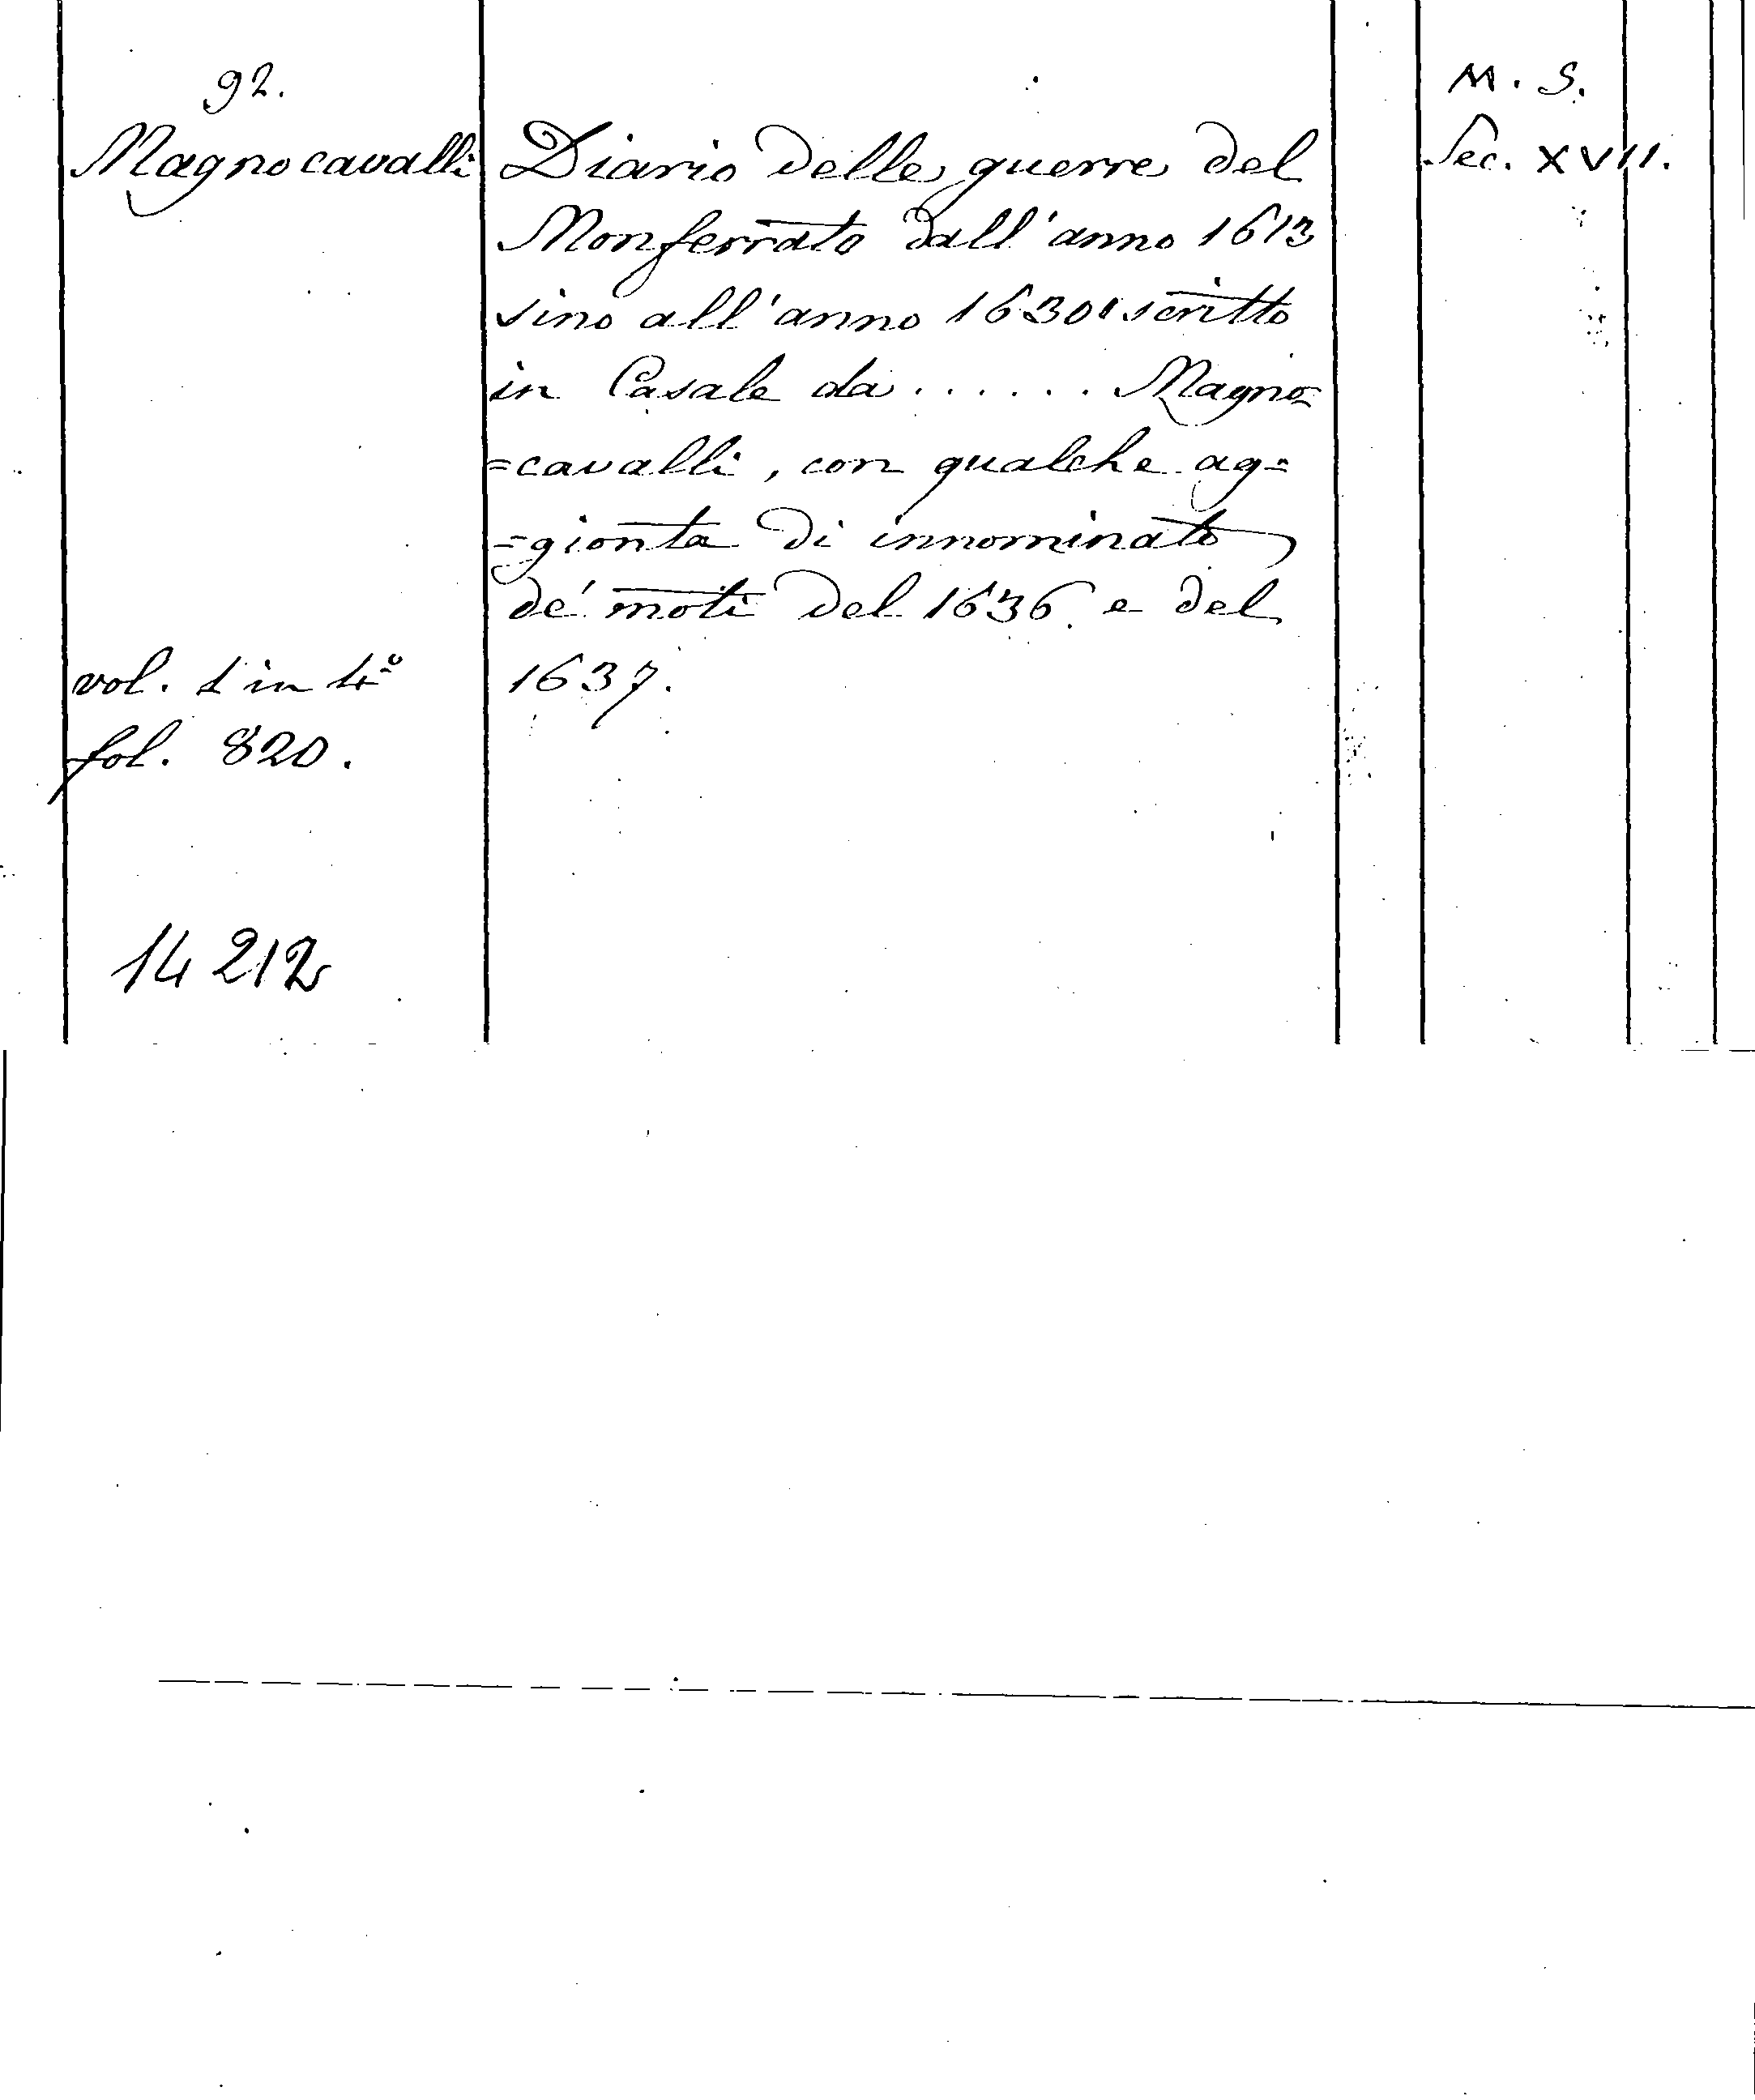 92.
Magnocavalli
vol. 1 in 4º
fol. 820.
14212
Diario delle guerre del
Monferrato dall'anno 1613
sino all'anno 1630 scritto
in Casale da ...... Magno=
=cavalli, con qualche ag=
=gionta di innominato
de' moti del 1636 e del
1637.
M. S.
Sec. XVII.